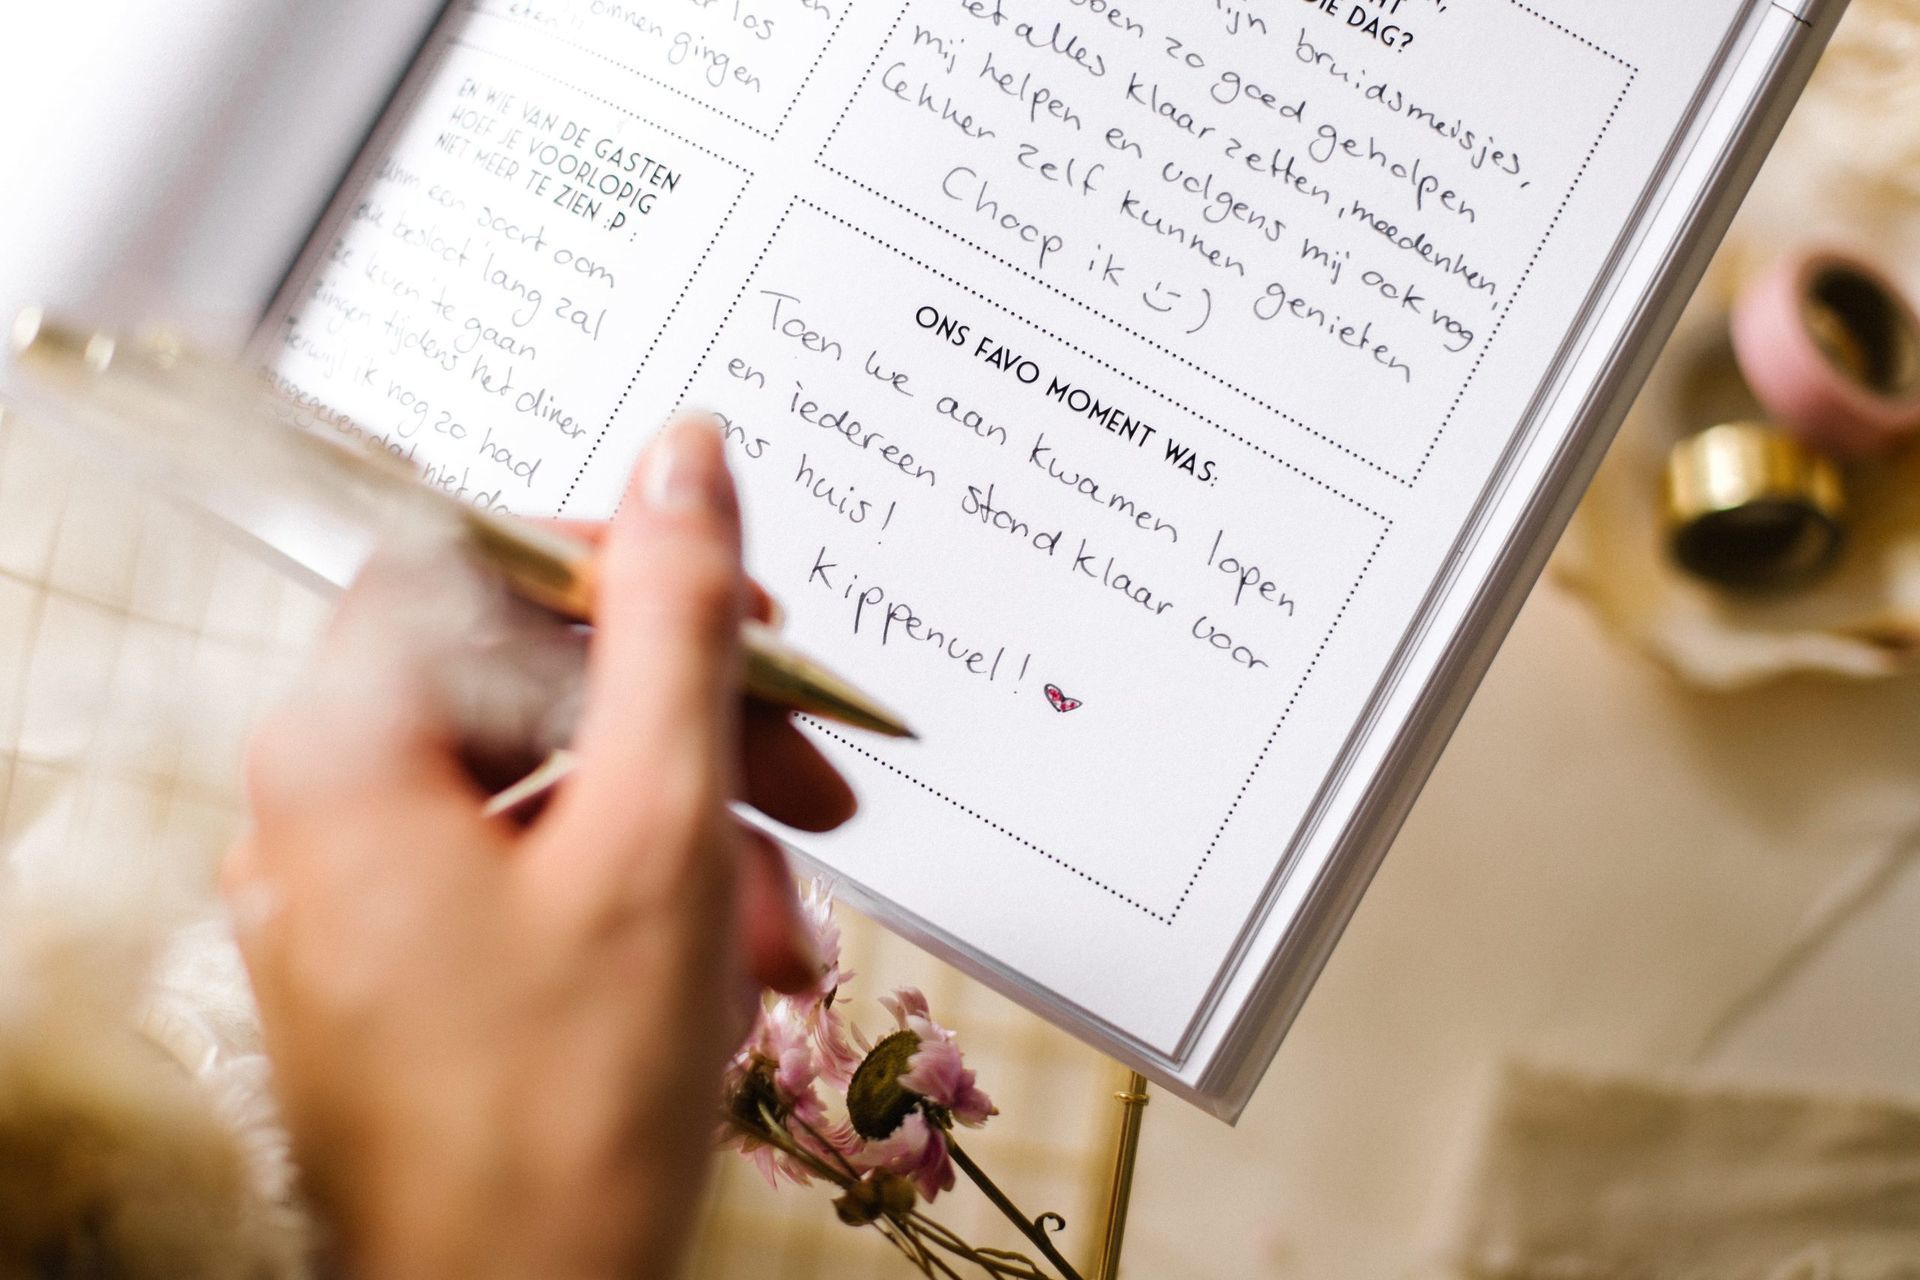 los
binnen gingen
EN WIE VAN DE GASTEN
HOEF JE VOORLOPIG
NIET MEER TE ZIEN :P :
een soort oom
die besloot lang zal
ze leven te gaan
zingen tijdens het diner
terwijl ik nog zo had
aangegeven dat niet
DIE DAG?
mijn bruidsmeisjes,
hebben zo goed geholpen
met alles klaar zetten, meedenken,
mij helpen en volgens mij ook nog
lekker zelf kunnen genieten
(hoop ik :)
ONS FAVO MOMENT WAS:
Toen we aan kwamen lopen
en iedereen stond klaar voor
ons huis!
Kippenvel!